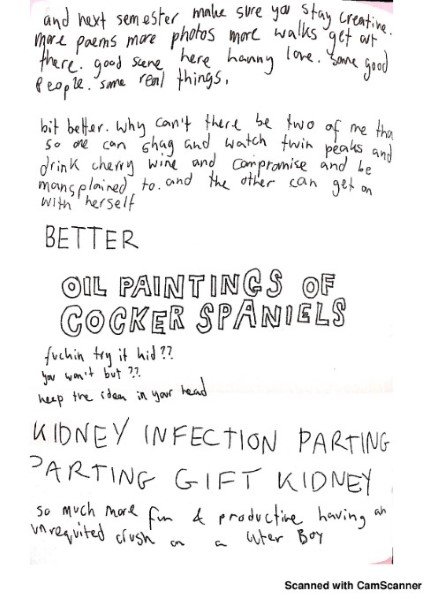 and next semester make sure you stay creative.
more poems more photos more walks get out
there. good scene here hanny love. some good
people. some real things.
bit better. why can't there be two of me tha
so one can shag and watch twin peaks and
drink cherry wine and compromise and be
mansplained to. and the other can get on
with herself
BETTER
OIL PAINTINGS OF
COCKER SPANIELS
fuckin try it kid??
you won't but??
keep the idea in your head
KIDNEY INFECTION PARTING
PARTING GIFT KIDNEY
so much more fun & productive having an
unrequited crush on a Boy
Scanned with CamScanner